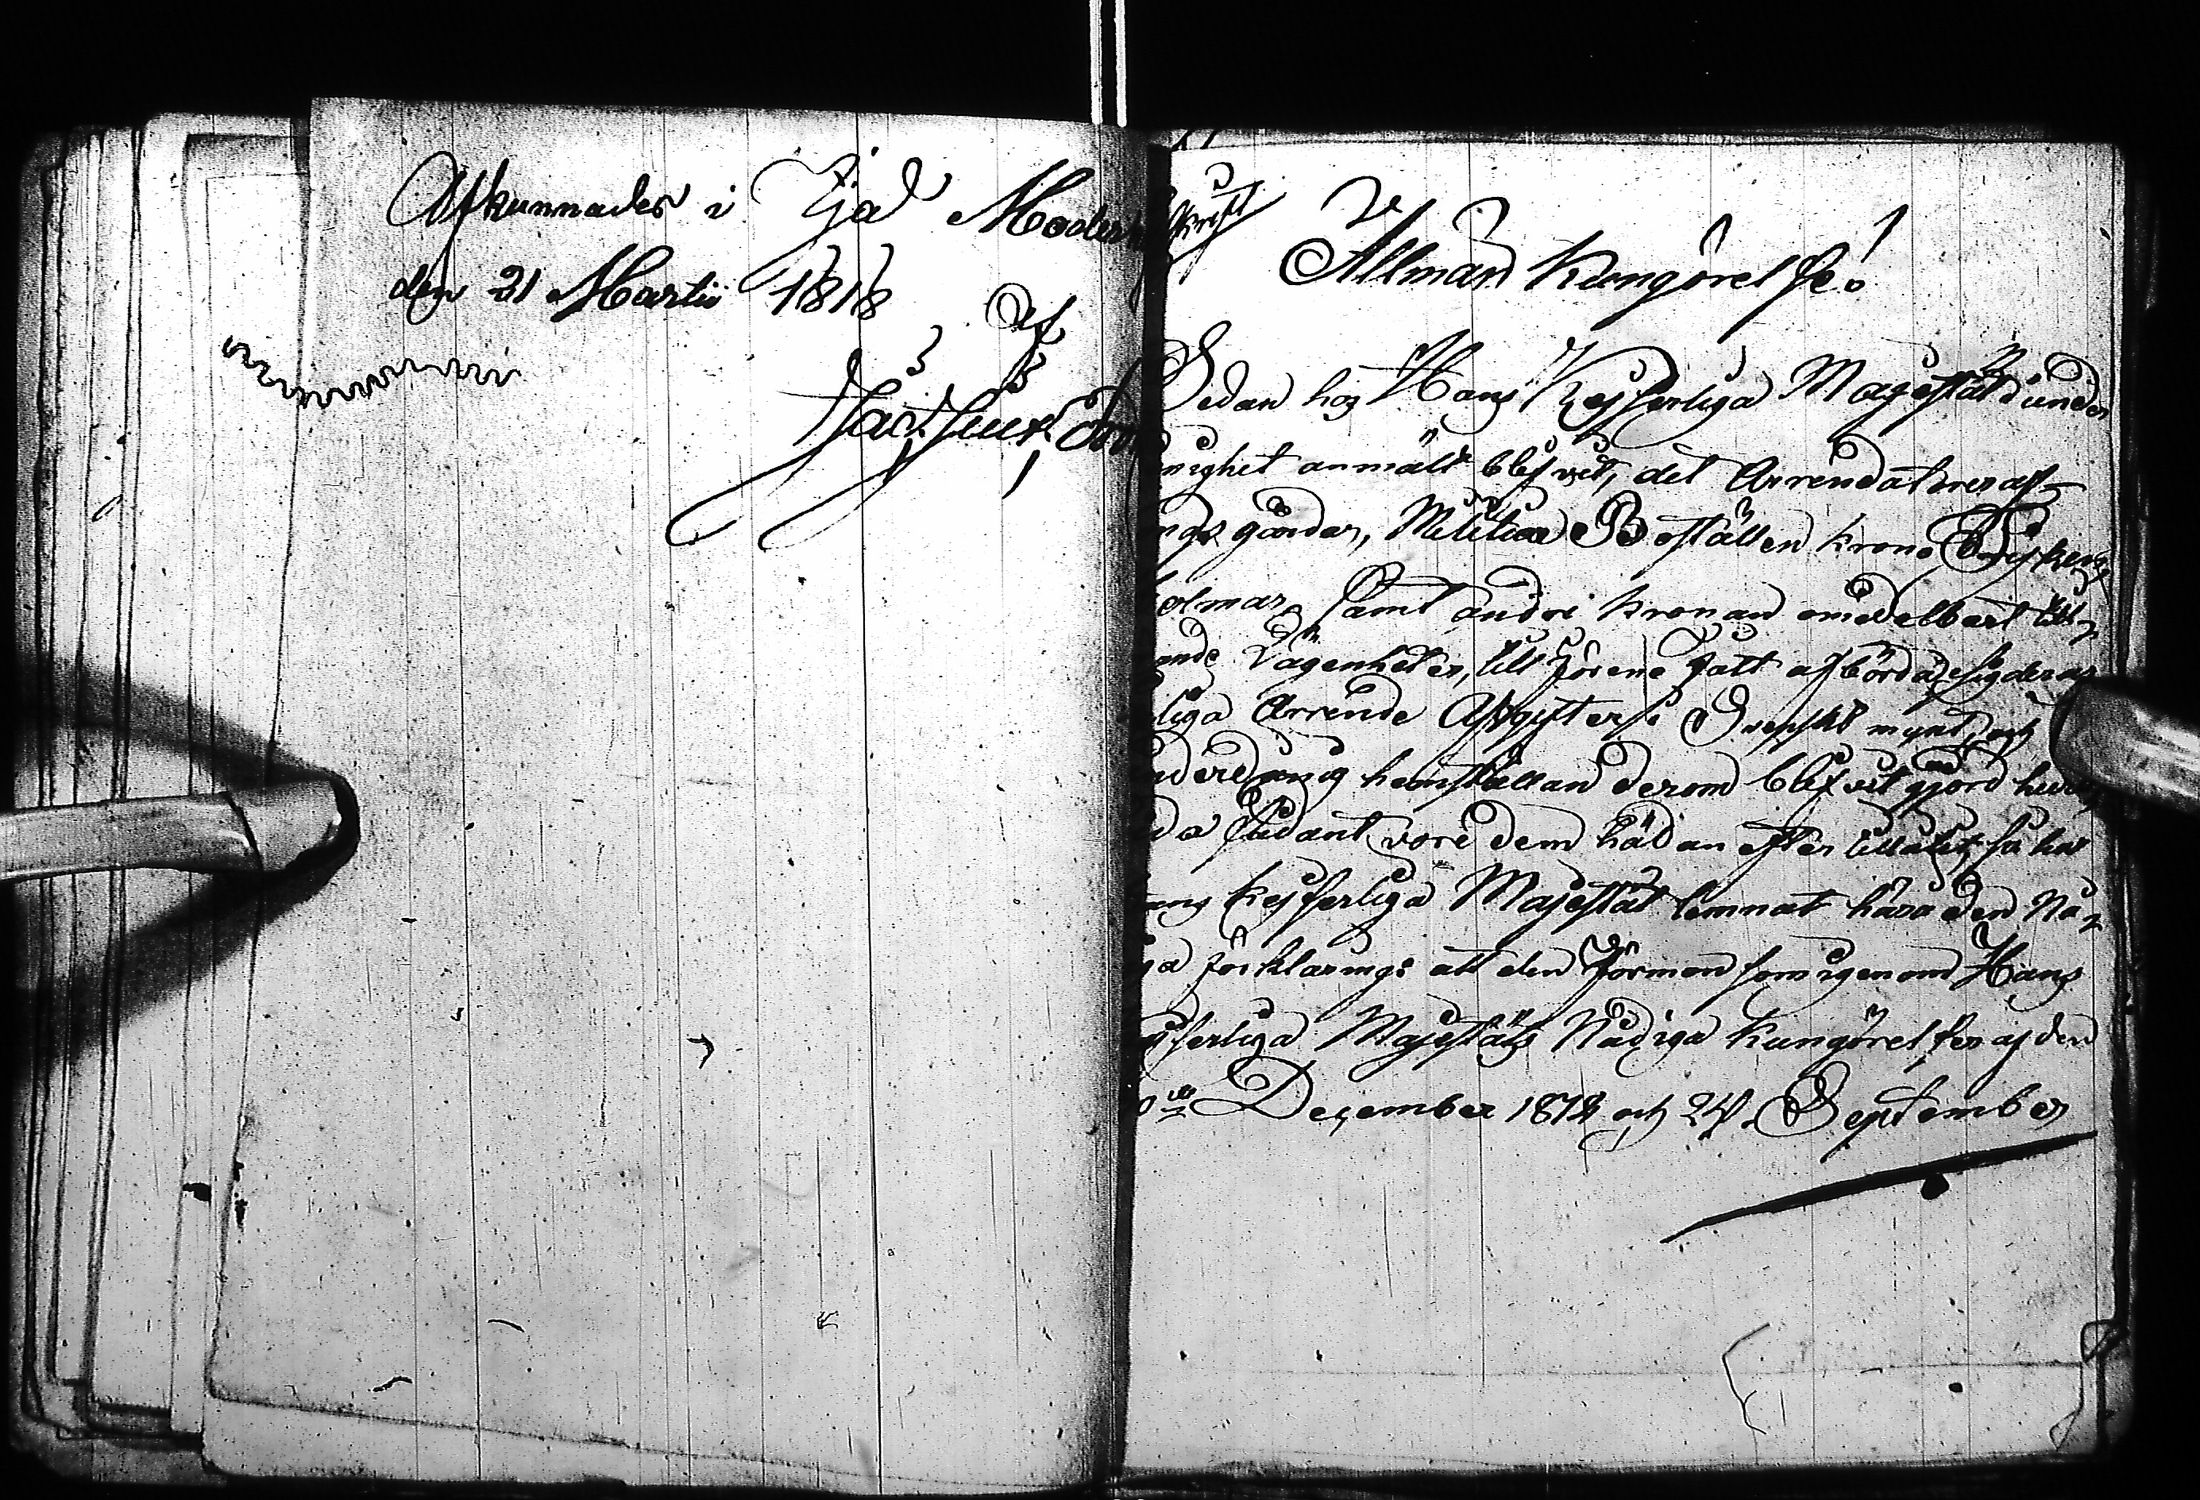 Afkunnades i Ijo Moder
den 21 Martii 1818
Af
Allmän Kungörelse!
Sedan hos Hans Kejserliga Majestät i under
nighet anmält blifvit, det Arrendatorer af
ngs gärder, Militiae Boställen krono
olmar, samt andre kronan omedelbart till
ande Lägenheter, till förene fått afbörda sig deras
liga Arrende Afgifter i Svenskt mynt, och
nderdånig hemställan derom blifvit gjord huru
da sådant vore dem hädan efter tillåtit, så har
ans Kejserliga Majestät lemnat håra den Nå
ga förklaring: att den Förmon som igenom Hans
ejserliga Majestäts Nådiga Kungörelser af den
December 1812 och 24 September